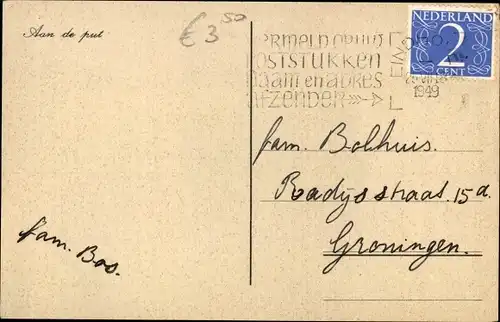 Aan de put
€ 3 50
NEDERLAND
2
CENT
ERMELD OP UW
POSTSTUKKEN
NAAM en ADRES
AFZENDER
1949
fam. Bolhuis.
Radijsstraat 15a.
Groningen.
fam. Bos.